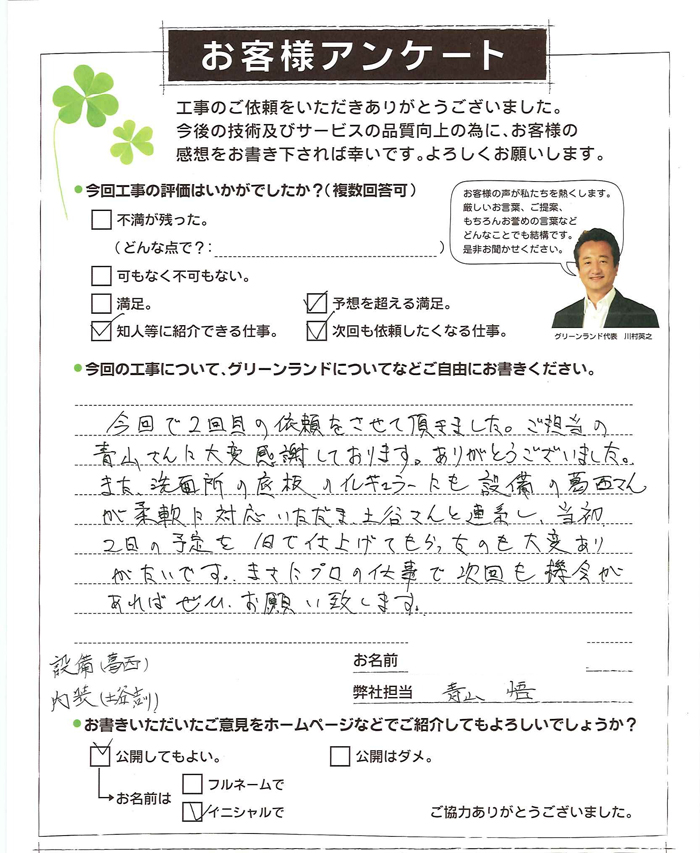 お客様アンケート
工事のご依頼をいただきありがとうございました。
今後の技術及びサービスの品質向上の為に、お客様の
感想をお書き下されば幸いです。よろしくお願いします。
今回工事の評価はいかがでしたか？（複数回答可）
不満が残った。
（どんな点で？：　　　）
可もなく不可もない。
満足。
予想を超える満足。
知人等に紹介できる仕事。
次回も依頼したくなる仕事。
お客様の声が私たちを熱くします。
厳しいお言葉、ご提案、
もちろんお誉めの言葉など
どんなことでも結構です。
是非お聞かせください。
グリーンランド代表　川村英之
今回の工事について、グリーンランドについてなどご自由にお書きください。
今回で2回目の依頼をさせて頂きました。ご担当の
青山さんに大変感謝しております。ありがとうございました。
また、洗面所の底板のイレギュラーにも設備の葛西さん
が柔軟に対応いただき、土谷さんと連系し、当初
2日の予定を1日で仕上げてもらったのも大変あり
がたいです。まさにプロの仕事で次回も機会が
あればぜひ、お願い致します。
設備（葛西）
内装（土谷
お名前
弊社担当　青山　悟
お書きいただいたご意見をホームページなどでご紹介してもよろしいでしょうか？
公開してもよい。
公開はダメ。
お名前は
フルネームで
イニシャルで
ご協力ありがとうございました。